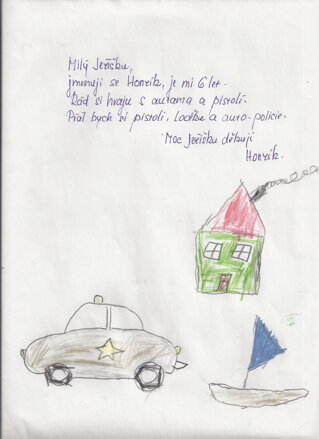 Milý Ježíšku,
jmenuji se Honzík, je mi 6 let.
Rád si hraju s autama a pistolí.
Přál bych si pistoli, loďku a auto-policie.
Moc Ježíšku děkuji
Honzík.